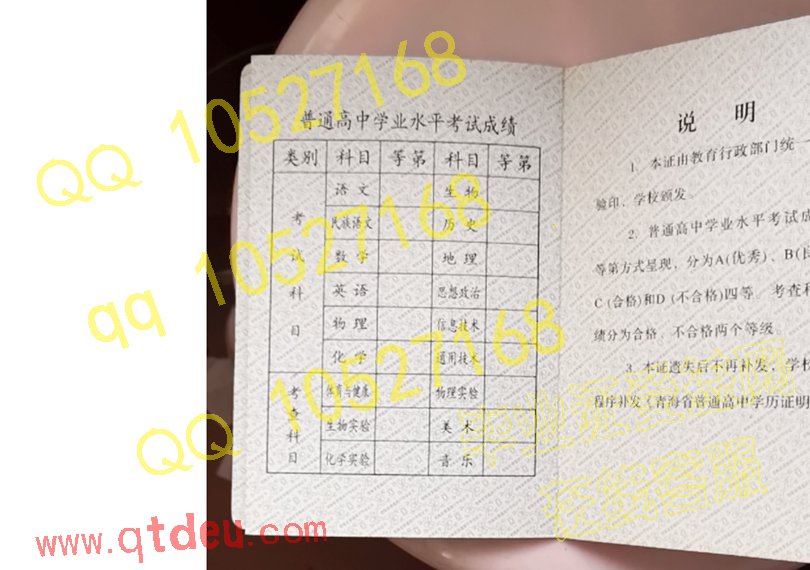 普通高中学业水平考试成绩
类别 科目 等第 科目 等第
考试科目 语文 生物
民族语文 历史
数学 地理
英语 思想政治
物理 信息技术
化学 通用技术
考查科目 体育与健康 物理实验
生物实验 美术
化学实验 音乐
说 明
1. 本证由教育行政部门统一
验印，学校颁发。
2. 普通高中学业水平考试成
等第方式呈现，分为A(优秀)、B(良
C (合格)和D (不合格)四等。考查科
绩分为合格、不合格两个等级。
3. 本证遗失后不再补发，学校
程序补发《青海省普通高中学历证明
QQ 10527168
qq 10527168
QQ 10527168
www.qtdeu.com